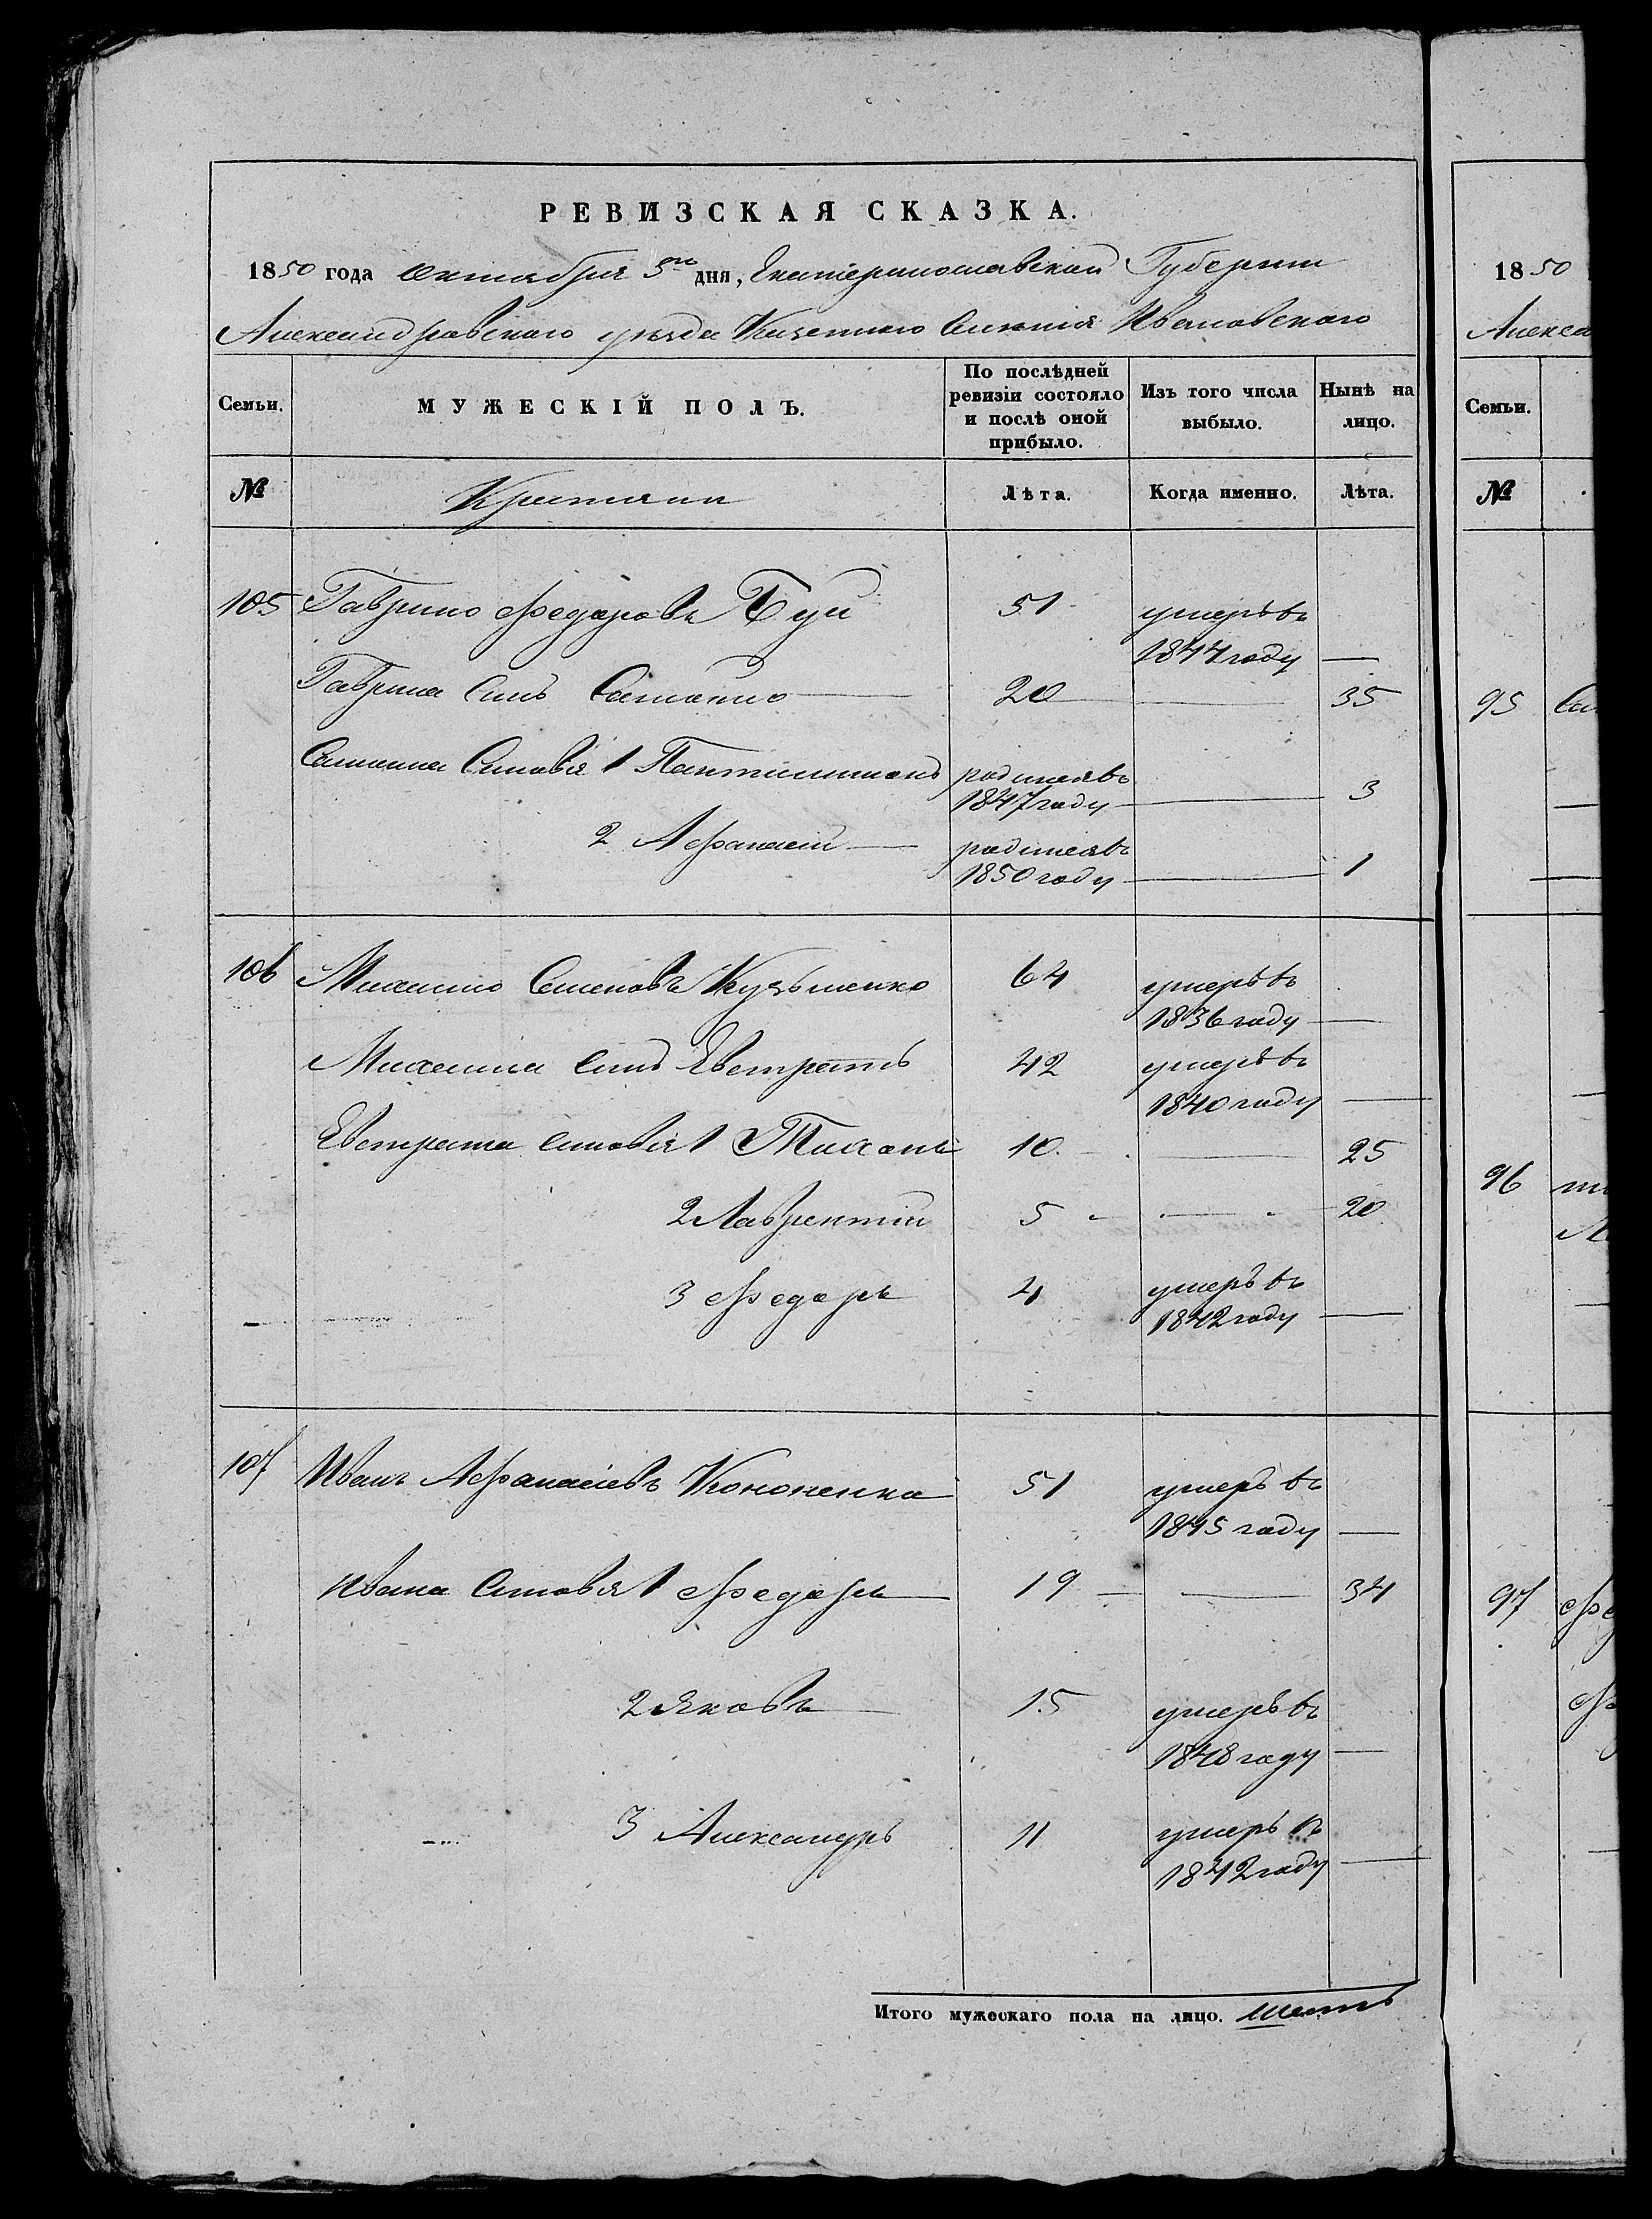 РЕВИЗСКАЯ СКАЗКА.
1850 года октября 5го дня, Екатеринославской Губернии
Александровского уезда Казенного Селения Ивановского
Семьи. МУЖЕСКІЙ ПОЛЪ. По послѣдней ревизіи состояло и послѣ оной прибыло. Изъ того числа выбыло. Нынѣ на лицо.
№ Лѣта. Когда именно. Лѣта.
105 Гаврило Федоровъ Буй 51 умеръ въ
1844 году —
Гаврила Сынъ Самойло 20 35
Самоила Сыновья 1 Пантилимонъ родился въ
1847 году 3
2 Афанасій родился въ
1850 году 1
106 Михаило Семеновъ Кузьменко 64 умеръ въ
1836 году —
Михаила Сынъ Евстратъ 42 умеръ въ
1840 году —
Евстрата сыновья 1 Тихонъ 10 25
2 Лаврентій 5 20
3 Федоръ 4 умеръ въ
1842 году —
107 Иванъ Афанасіевъ Кононенка 51 умеръ въ
1845 году —
Ивана Сыновья 1 Федоръ 19 34
2 Яковъ 15 умеръ въ
1848 году —
3 Александръ 11 умеръ въ
1842 году —
Итого мужескаго пола на лицо. шесть
1850
Алекса
Семьи.
№
95
96
97